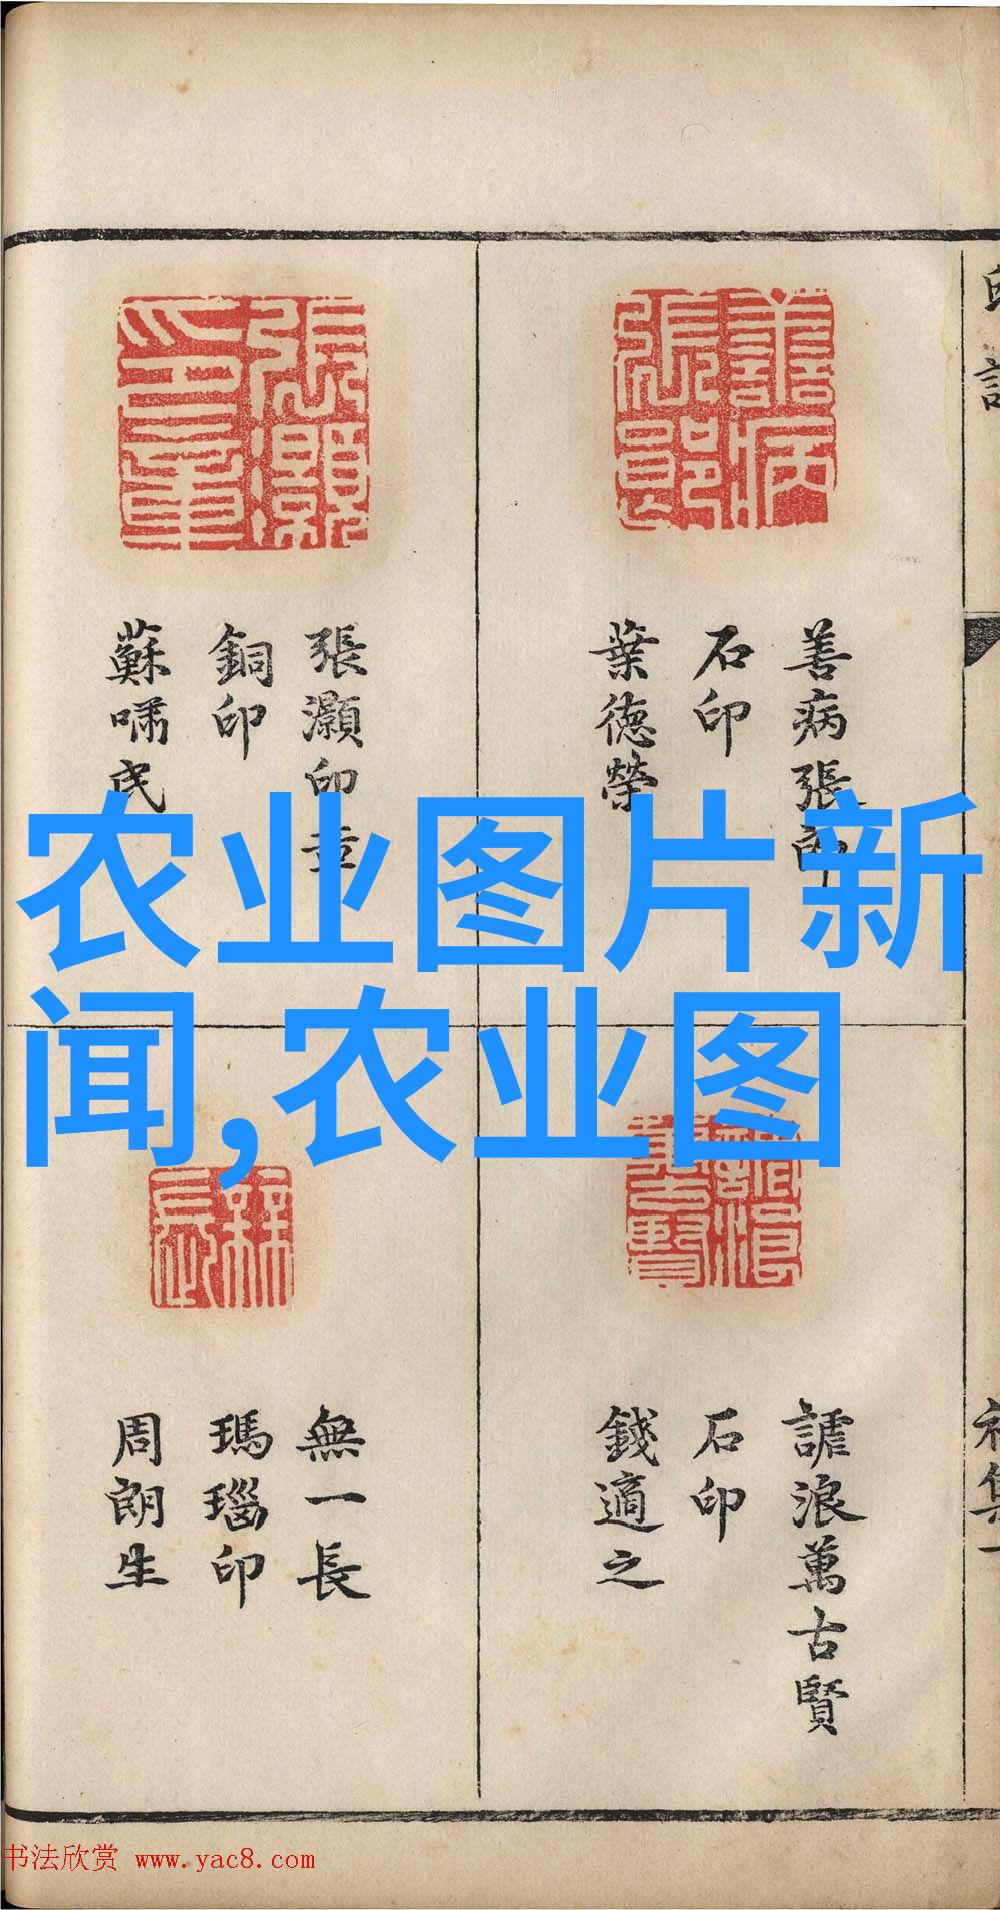 善病張郎
石印
葉德榮
張灝印章
銅印
蘇嘯民
謔浪萬古賢
石印
錢適之
無一長
瑪瑙印
周朗生
初集一
农业图片新
闻,农业图
书法欣赏 www.yac8.com